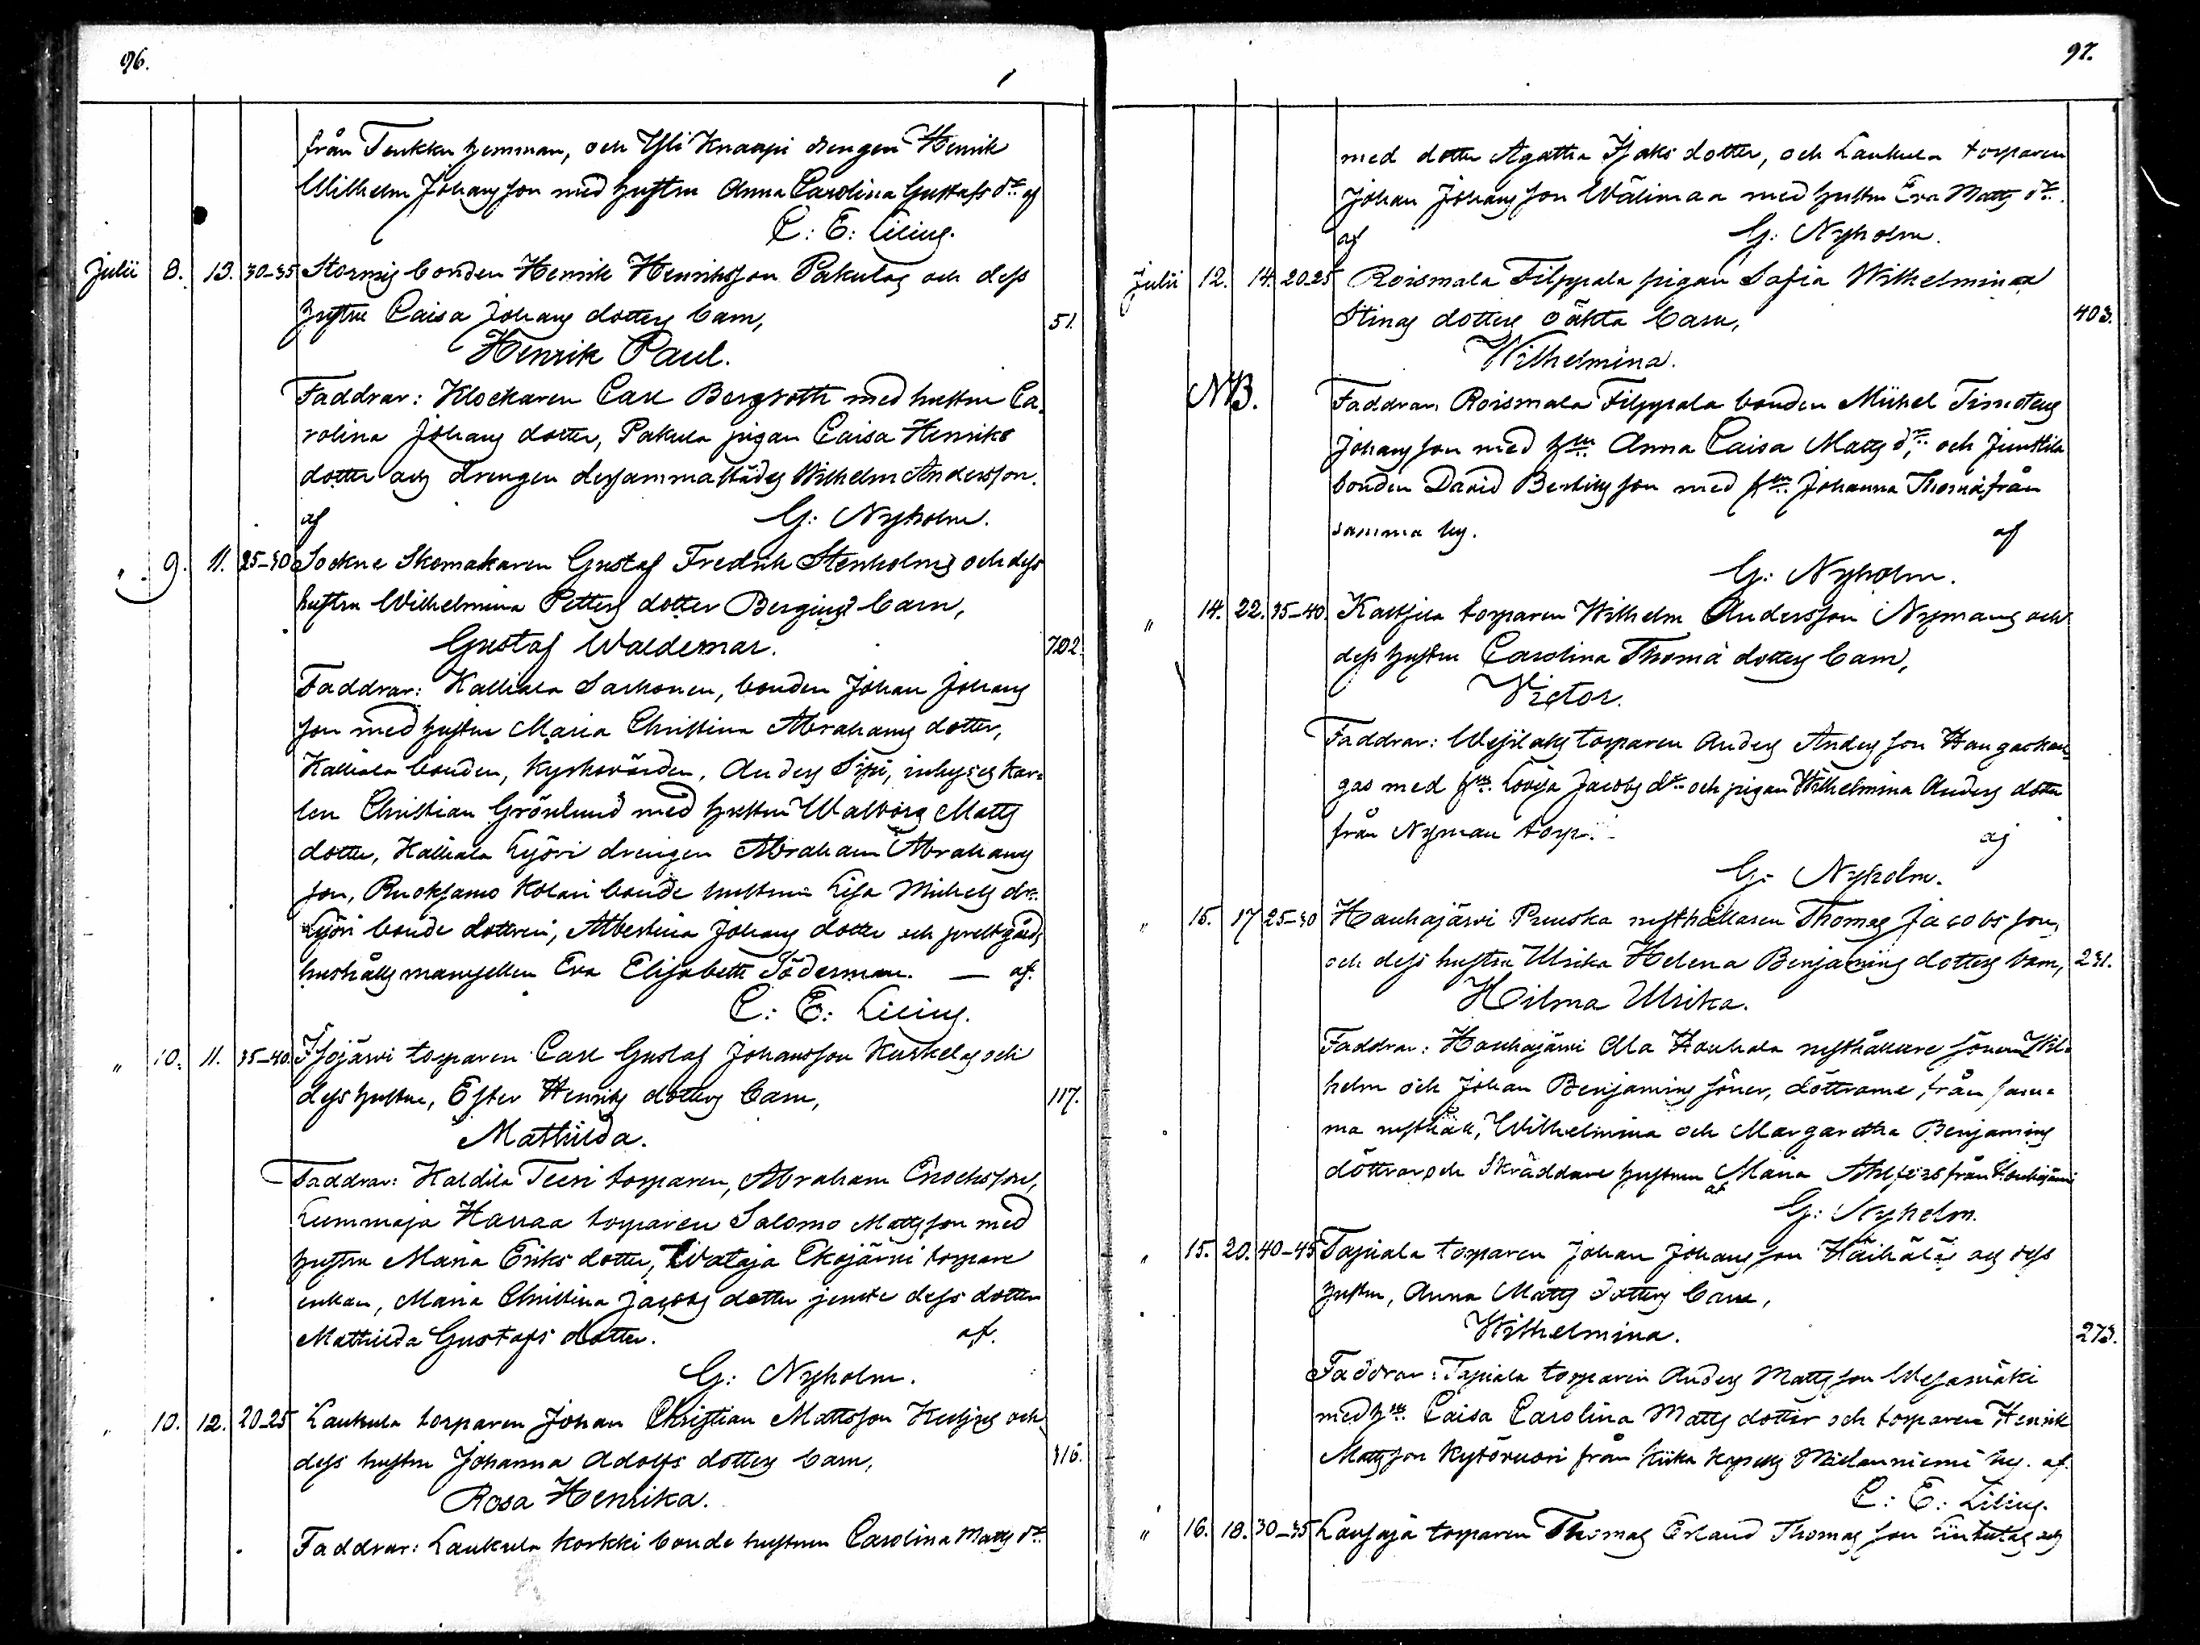 96.
från Tenkku hemman, och Yli Knaapi drengen Henrik
Wilhelm Johansson med hustru Anna Carolina Gustafs dr af
C: E: Lilius.
Julii 8. 13. 30-35 Stormis bonden Henrik Henriksson Pakulas och dess
hustru Caisa Johans dotters barn, 51.
Henrik Paul.
Faddrar: Klockaren Carl Bergroth med hustru Ca-
rolina Johans dotter, Pakula pigan Caisa Henriks
dotter och drengen dersammastädes Wilhelm Andersson.
af G: Nyholm.
" 9. 11. 25-30 Sockne Skomakaren Gustaf Fredrik Stenholms och dess
hustru Wilhelmina Petters dotter Bergius' barn,
Gustaf Waldemar. 702.
Faddrar: Kalliala Sarkonen, bonden Johan Johans
son med hustru Maria Christina Abrahams dotter,
Kalliala bonden, Kyrkovärden, Anders Sipi, inhyses kar-
len Christian Grönlund med hustru Walborg Matts
dotter, Kalliala Lyöri drengen Abraham Abrahams
son, Ruoksamo Kolari bonde hustrun Lisa Michels dr
Lyöri bonde dottren, Albertina Johans dotter och prestgårds
hushålls mamsellen Eva Elisabeth Söderman. — af.
C: E: Lilius.
" 10. 11. 35-40. Isojärvi torparen Carl Gustaf Johansson Kuskelas och
dess hustru, Ester Henriks dotters barn, 117.
Mathilda.
Faddrar: Haldila Teeri torparen, Abraham Enochsson,
Lummaja Harraa torparen Salomo Mattsson med
hustru Maria Eriks dotter, Wataja Ekojärvi torpare
enkan, Maria Christina Jacobs dotter jemte dess dotter
Mathilda Gustafs dotter. af.
G: Nyholm.
" 10. 12. 20-25 Laukula torparen Johan Christian Mattsson och
dess hustru Johanna Adolfs dotters barn, 316.
Rosa Henrika.
Faddrar: Laukula Korkki bonde hustrun Carolina Matts dr
97.
med dotter Agatha Isaks dotter, och Laukula torparen
Johan Johansson Wälimaa med hustru Eva Matts dr.
af G: Nyholm.
Julii 12. 14. 20-25 Roismala Filppula pigan Sofia Wilhelmina
Stinas dotters oäkta barn, 403.
Wilhelmina.
NB. Faddrar: Roismala Filppula bonden Michel Timoteus
Johansson med hu Anna Caisa Matts dr, och Junttila
bonden David Bertilsson med hu Johanna Thomä från
samma by. af
G: Nyholm.
" 14. 22. 35-40. Karttila torparen Wilhelm Andersson Nymans och
dess hustru Carolina Thomä dotters barn,
Victor.
Faddrar: torparen Anders Andersson Hangaskan
gas med hu Lovisa Jacobs dr och pigan Wilhelmina Anders dotter
från Nyman torp. af
G: Nyholm.
" 15. 17 25-30 Houhajärvi Pruuska rusthållaren Thomas Jacobsson,
och dess hustru Ulrika Helena Benjamins dotters barn, 231.
Hilma Ulrika.
Faddrar: Houhajärvi Ala Houhala rusthållare sönen Wil-
helm och Johan Benjamins söner, döttrarne, från sam-
ma rusthåll, Wilhelmina och Margaretha Benjamins
döttrar och Skräddare hustrun Maria Ahlfors från Houhajärvi
af G: Nyholm.
" 15. 20. 40-45 Tapiala torparen Johan Johansson Häihäläs och dess
hustru, Anna Matts dotters barn,
Wilhelmina. 273.
Faddrar: Tapiala torparen Anders Mattsson Wesamäki
med hu Caisa Carolina Matts dotter och torparen Henrik
Mattsson Kytövuori från Kiikka Kapells Wiidanniemi by. af.
C: E: Lilius.
" 16. 18. 30-35 torparen Thomas Erland Thomasson och